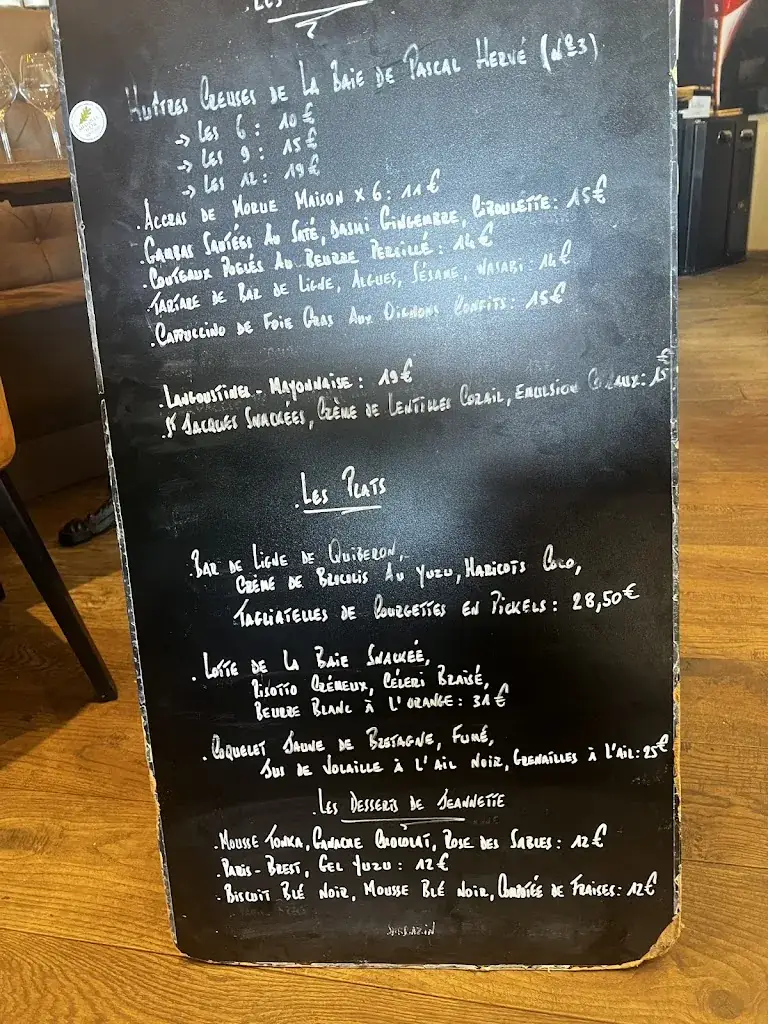 Les
Huîtres Creuses de La Baie de Pascal Hervé (N°3)
→ Les 6 : 10 €
→ Les 9 : 15 €
→ Les 12 : 19 €
. Accras de Morue Maison x 6 : 11 €
. Gambas Sautées Au Saté, Dashi Gingembre, Ciboulette : 15 €
. Couteaux Poêlés Au Beurre Persillé : 14 €
. Tartare de Bar de Ligne, Algues, Sésame, Wasabi : 14 €
. Cappuccino de Foie Gras Aux Oignons Confits : 15 €
. Langoustines - Mayonnaise : 19 €
. St Jacques Snackées, Crème de Lentilles Corail, Emulsion : 15 €
. Les Plats
. Bar de Ligne de Quiberon,
Crème de Brocolis Au Yuzu, Haricots Coco,
Tagliatelles de Courgettes en Pickels : 28,50 €
. Lotte de La Baie Snackée,
Risotto Crémeux, Céleri Braisé,
Beurre Blanc à l'orange : 31 €
. Coquelet Jaune de Bretagne, Fumé,
Jus de Volaille à l'Ail Noir, Grenailles à l'Ail : 25 €
. Les Desserts de Jeannette
. Mousse Tonka, Ganache Chocolat, Rose des Sables : 12 €
. Paris-Brest, Gel Yuzu : 12 €
. Biscuit Blé Noir, Mousse Blé Noir, Compotée de Fraises : 12 €